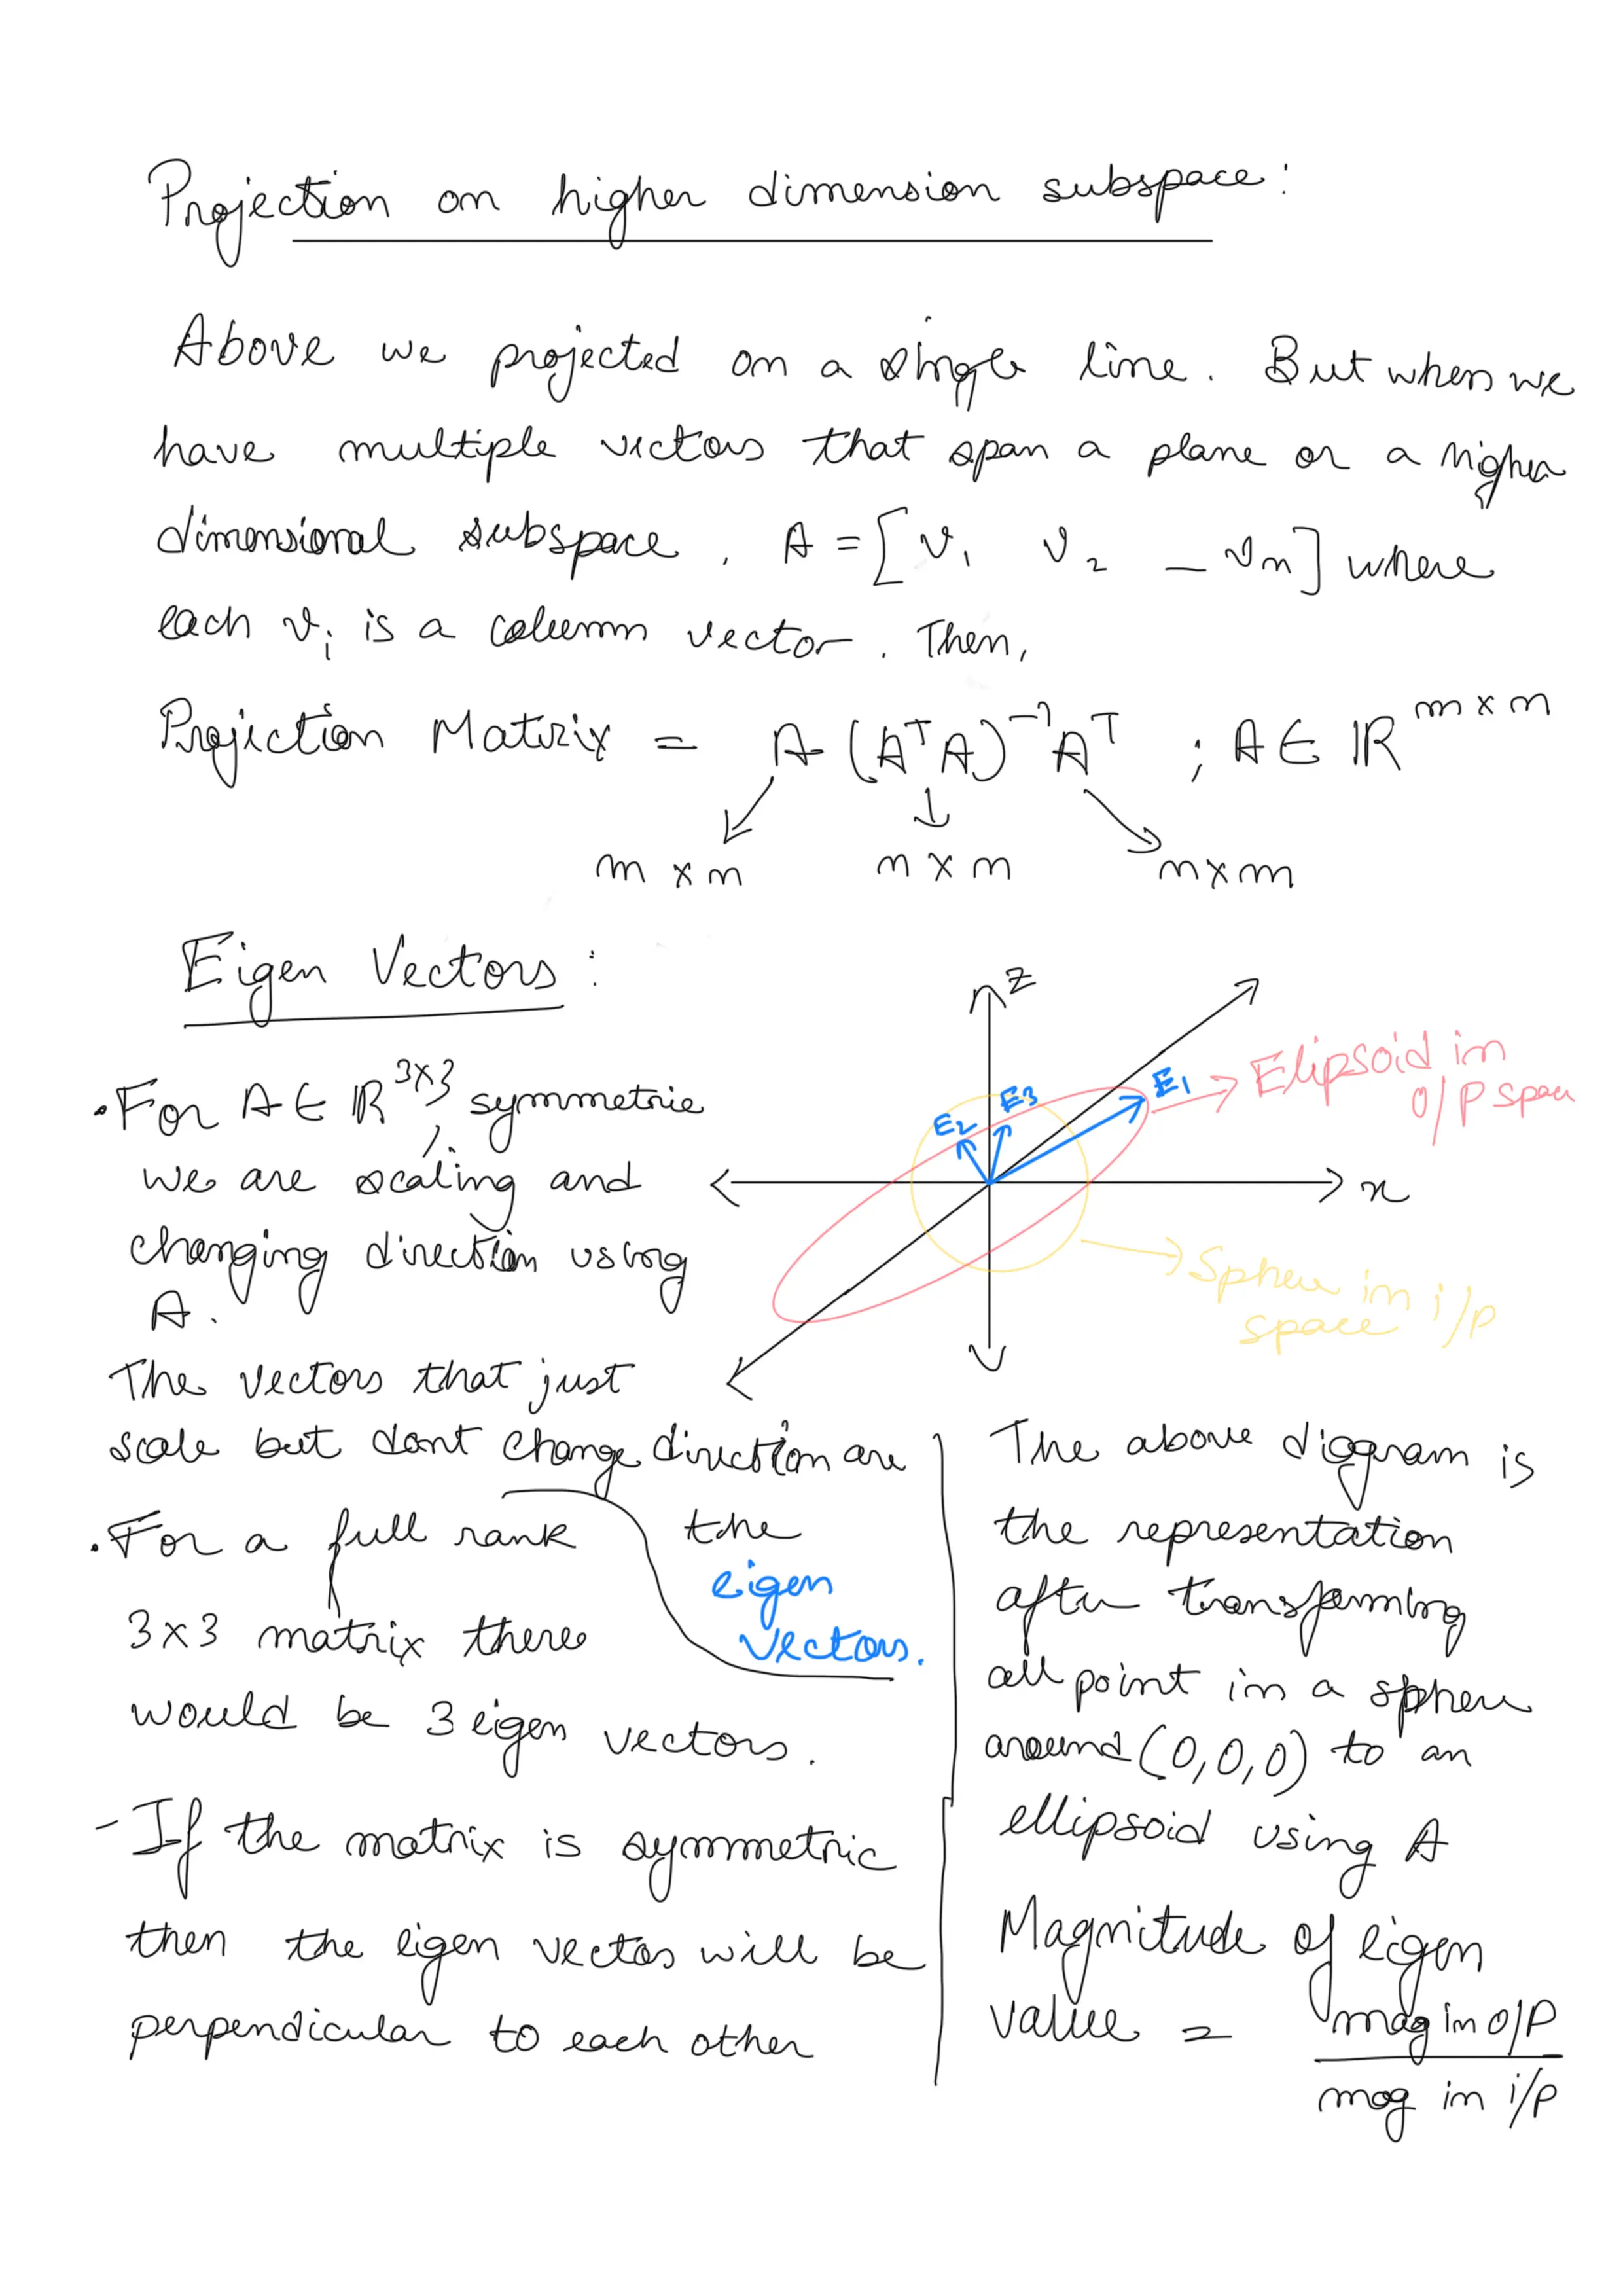 Projection on higher dimension subspace:
Above we projected on a single line. But when we
have multiple vectors that span a plane or a higher
dimensional subspace, A = [v₁ v₂ _ vn] where
each vᵢ is a column vector. Then,
Projection Matrix = A (AᵀA)⁻¹Aᵀ ; A ∈ ℝ^(m×n)
m×n n×n n×m
Eigen Vectors:
.For A ∈ ℝ^(3×3) symmetric,
we are scaling and
changing direction using
A.
The vectors that just
scale but dont change direction are
the
eigen
vectors.
.For a full rank
3×3 matrix there
would be 3 eigen vectors.
-If the matrix is symmetric
then the eigen vectos will be
perpendicular to each other
z
x
E1
E2
E3
Elipsoid in
O/P space
Sphere in i/p
space
The above diagram is
the representation
after transforming
all point in a sphere
around (0,0,0) to an
ellipsoid using A
Magnitude of eigen
value = mag in O/P
mag in i/p